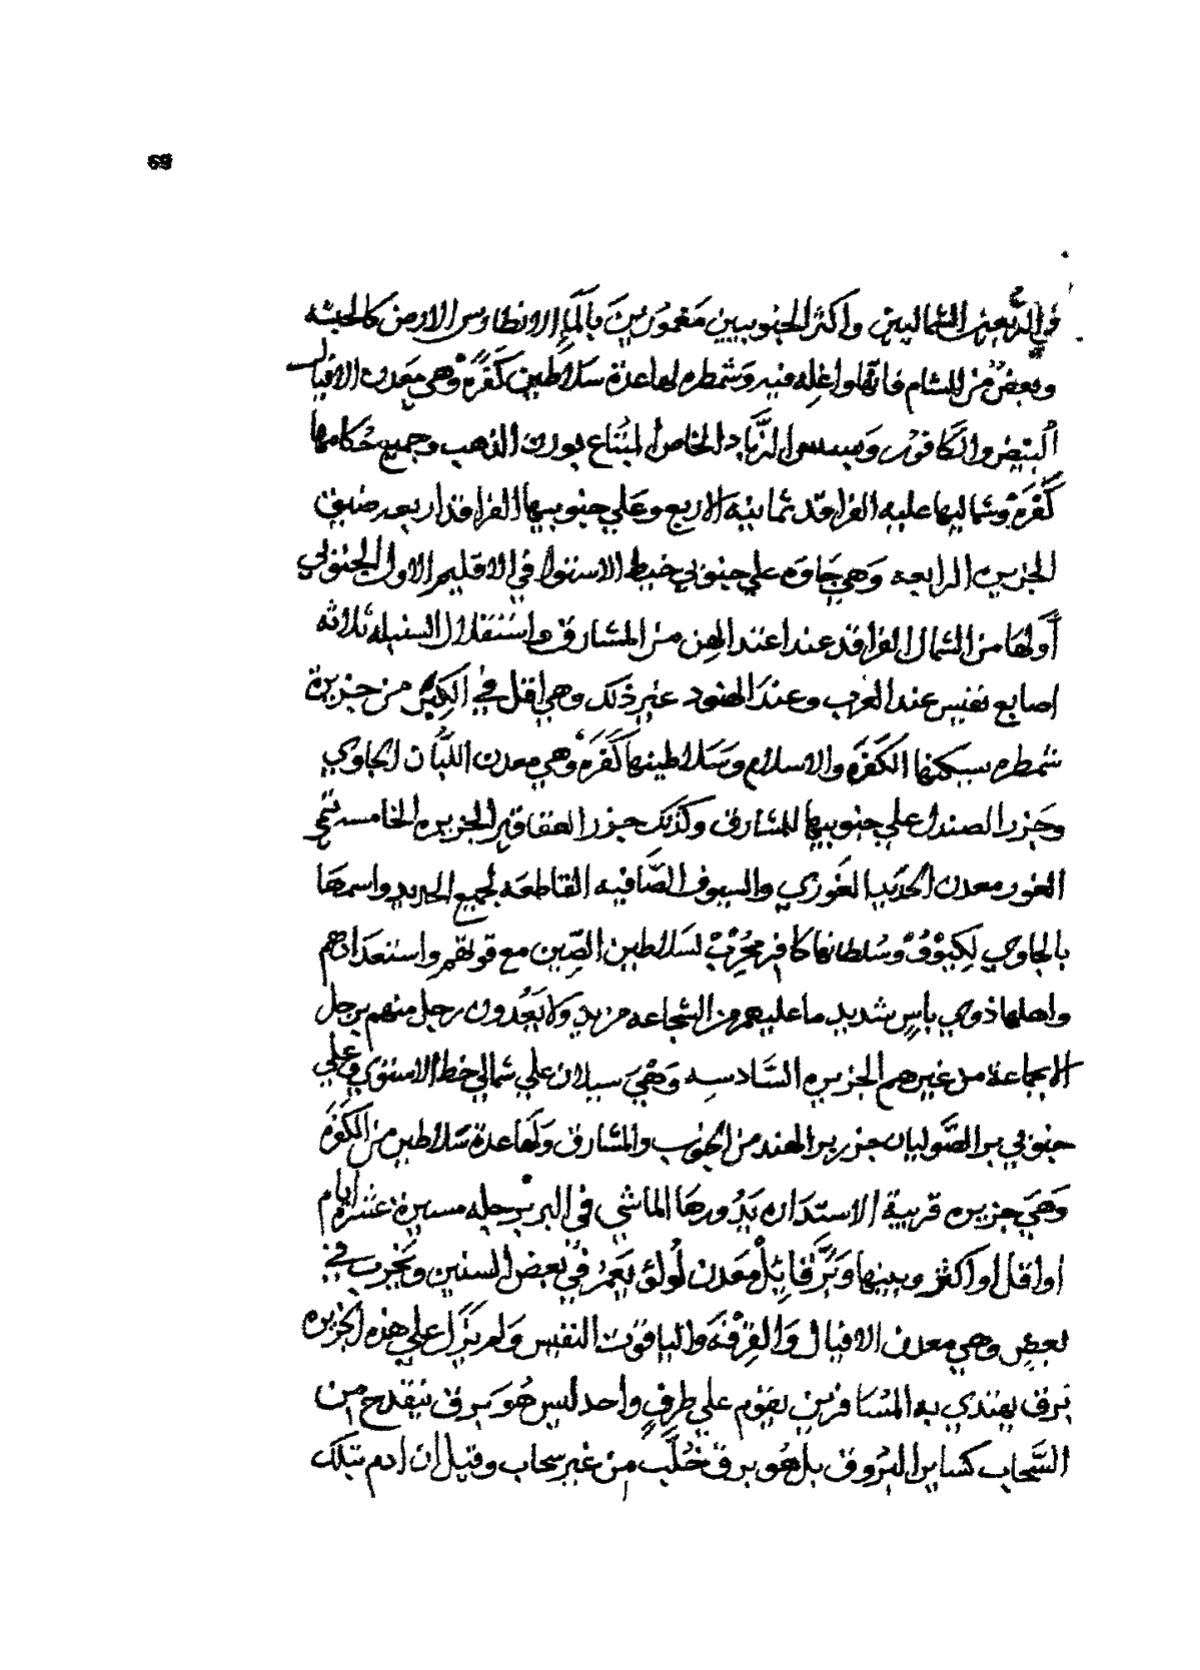 69
في الربعين الشماليين واكثر الجنوبيين مغمورين بالماء الا نطاوس الارض كالحبشه
وبعض من الشام فانها واغله فيه وشمطره لها عدة سلاطين كَفَرَةٌ وهي معدن الافيال
البيض والكافور وبسس الزَّبَاد الخاص المبتاع بوزن الذهب وجميع حكامها
كَفَرَةٌ وشماليها عليه الفراقد ثمانية الاربع وعلي جنوبيها الفراقد اربعه ضيق
الجزيره الرابعه وَهي جَاوَه علي جنوبي خيط الاستوا في الاقليم الاول الجنوبي
أَولهَا من الشمال الفراقد عند اعتدالهن من المشارق واستقلال السنبله ثلاثه
اصابع نفيس عند العرب وعند الهنود غير ذلك وهي اقل في الكِبَر من جزيرة
شمطره يسكنها الكَفَرَه والاسلام وسَلاطينها كَفَرَهٌ وهي معدن اللُّبَان الجاوي
وجزر الصندل علي جنوبيها للمشارق وكذلك جزر العقاقير الجزيره الخامسه تسمي
الغور معدن الحَديد الغَوري والسيوف الصَّافيه القاطعَه لجميع الحديد واسمهَا
بالجاوي لِكيَوْفُوْ وسُلطانها كافر مُحِرْبْ لسَلاطين الصِّين مع قوتهم واستعدادهم
واهلها ذوي باسٍ شديد ما عليهم من الشجاعه مزيد ولا يَعُدون رجل منهم برجل
الا بجماعة من غيرهم الجزيره السَّادسه وَهْيَ سيلان علي شمالي خط الاستوي وعلي
جنوبي بر الصَّوليان جزر بر الهند من الجنوب والمشارق ولهَا عدة سَلاطين من الكَفَرَه
وَهَيَ جزيره قريبة الاستدَاره يَدُورهَا الماشي في البر برجله مسيرة عشرة ايام
او اقل او اكثر وبينها وَبَرّ قَايِلْ معدن لُولؤ يَعمُر في بعض السنين ويَخرب في
بعض وهي معدن الافيال وَالقِرْفَه وَالياقوت النفيس وَلم يَزَل علي هذه الجزيره
برق يهتدي به المسَافرين يقوم علي طرفٍ واحد ليس هُو بَرق ينقدح من
السَّحاب كساير البُروق بل هُو برق خُلَّب من غير سحاب وقيل ان ادم بتلك